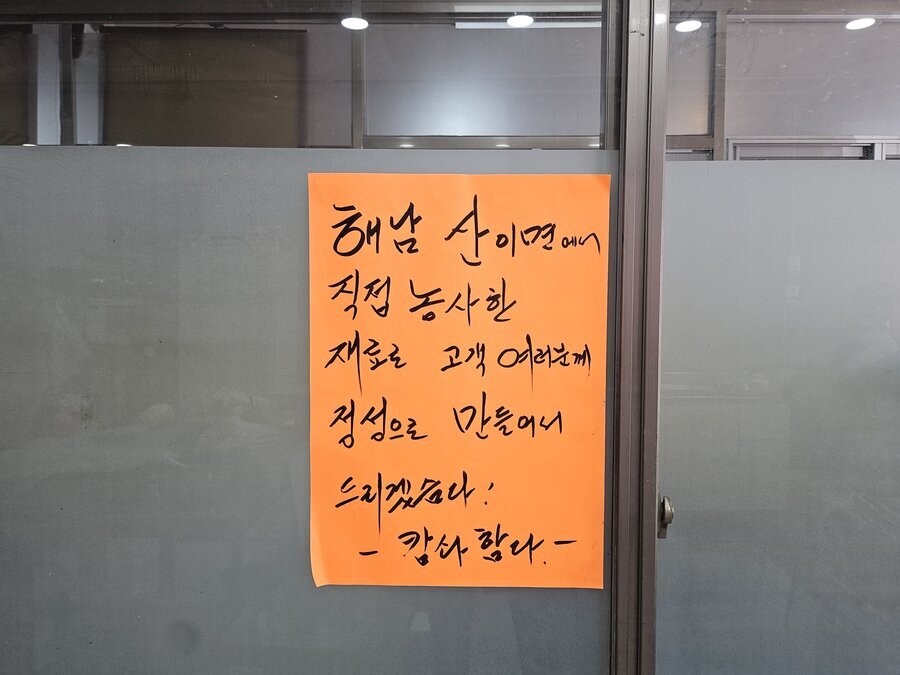 해남 산이면에서
직접 농사한
재료로 고객 여러분께
정성으로 만들어서
드리겠습다!
- 캄사함다. -